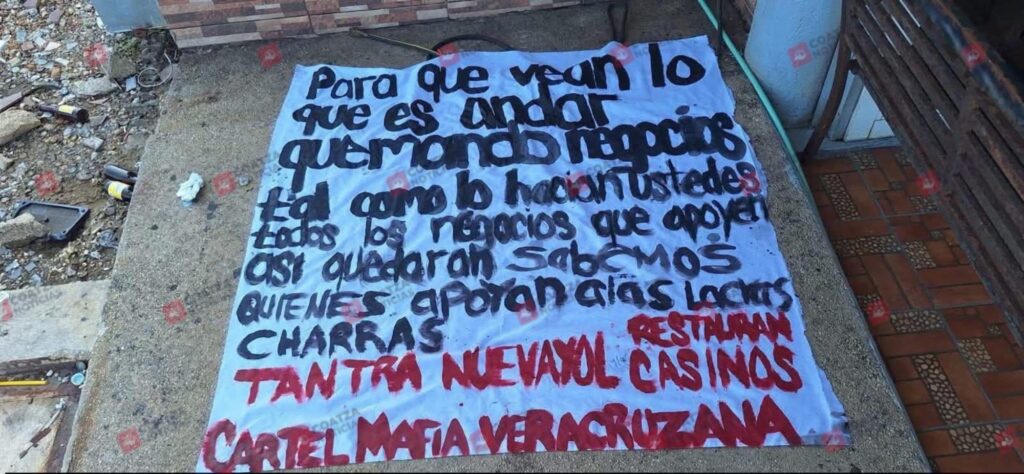 Para que vean lo
que es andar
quemando negocios
tal como lo hacian ustedes
todos los negocios que apoyen
asi quedaran sabemos
QUIENES apoyan a las Lacras
CHARRAS
RESTAURAN
TANTRA NUEVAYOL CASINOS
CARTEL MAFIA VERACRUZANA
COATZA
NOTICIAS